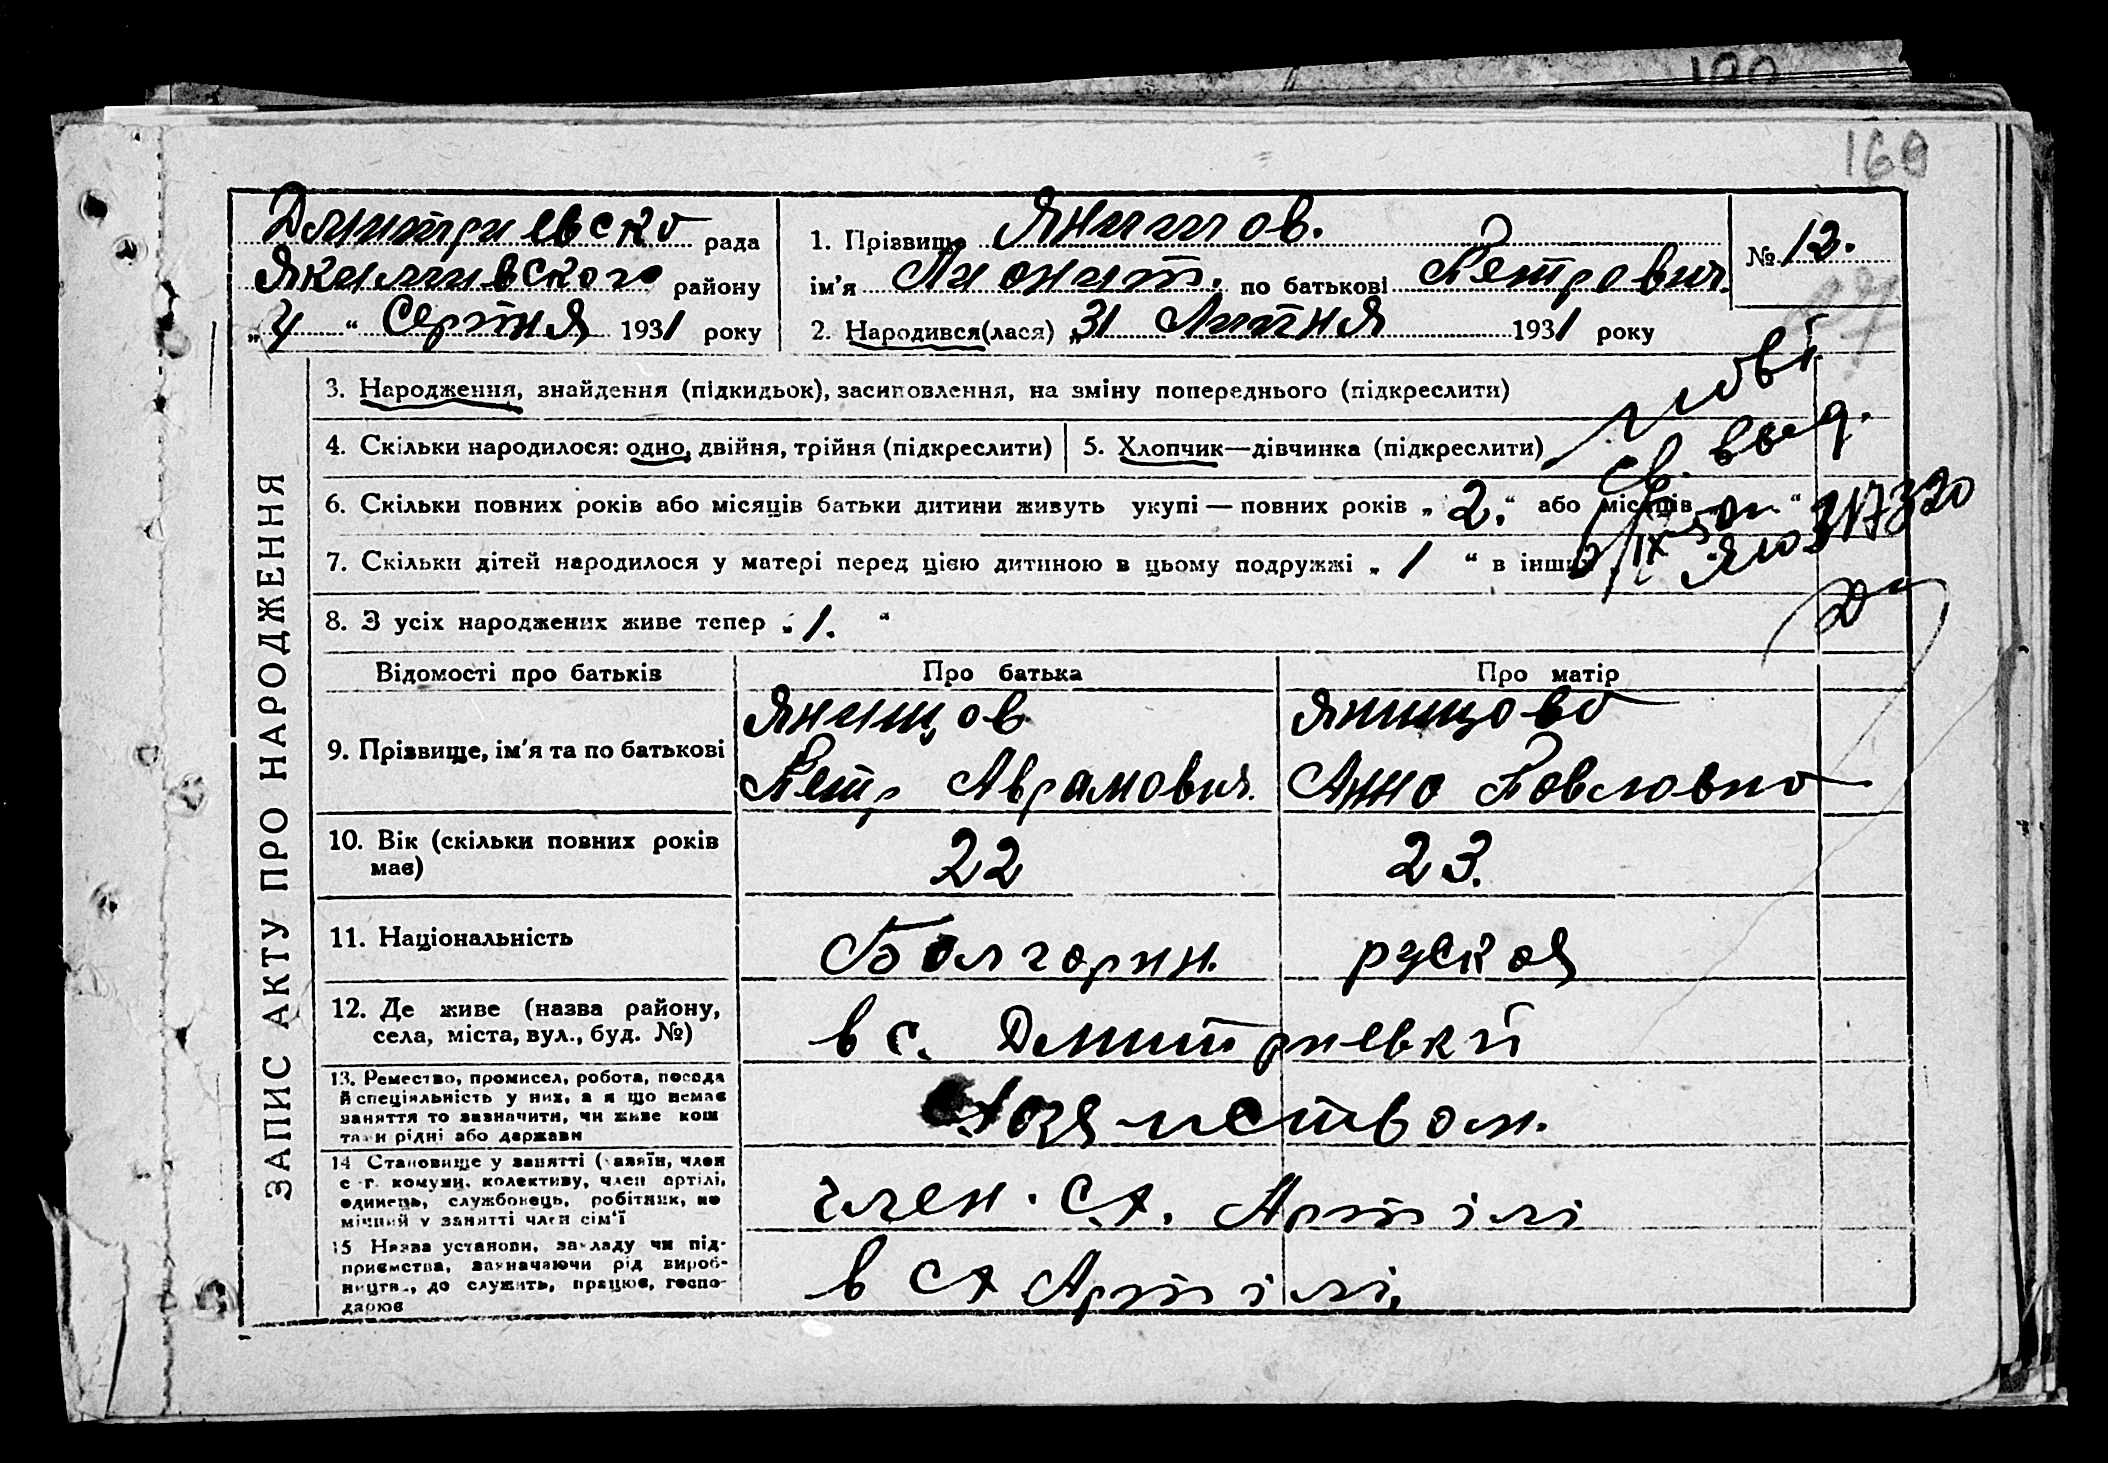 160
Дмитриевско рада
Якимивского району
„4“ Серпня 1931 року
1. Прізвище Янишов.
ім'я Лионит. по батькові Петрович.
2. Народився(лася) „31 Липня 1931 року
№ 12.
ЗАПИС АКТУ ПРО НАРОДЖЕННЯ
3. Народження, знайдення (підкидьок), засиновлення, на зміну попереднього (підкреслити)
4. Скільки народилося: одно, двійня, трійня (підкреслити)
5. Хлопчик—дівчинка (підкреслити)
6. Скільки повних років або місяців батьки дитини живуть укупі — повних років „2.“ або місяців
7. Скільки дітей народилося у матері перед цією дитиною в цьому подружжі „1“ в інших
8. З усіх народжених живе тепер „1.“
Відомості про батьків Про батька Про матір
9. Прізвище, ім'я та по батькові
Янищов
Петр Аврамович.
Янищова
Анна Павловна
10. Вік (скільки повних років
має)
22 23.
11. Національність Болгарин. руская
12. Де живе (назва району,
села, міста, вул., буд. №)
в с. Дмитриевки
13. Ремество, промисел, робота, посада
й спеціяльність у них, а я що немає
заняття то зазначити, чи живе кош
тами рідні або держави
Хозяиством.
14 Становище у занятті (хазяїн, член
с-г. комуни, колективу, член артілі,
одинець, службовець, робітник, по
мічний у занятті член сім'ї
член. С.Х. Артілі
15 Назва установи, закладу чи під-
приємства, зазначаючи рід вироб-
ництв., де служить, працює, госпо-
дарює
в СХ Артілі,